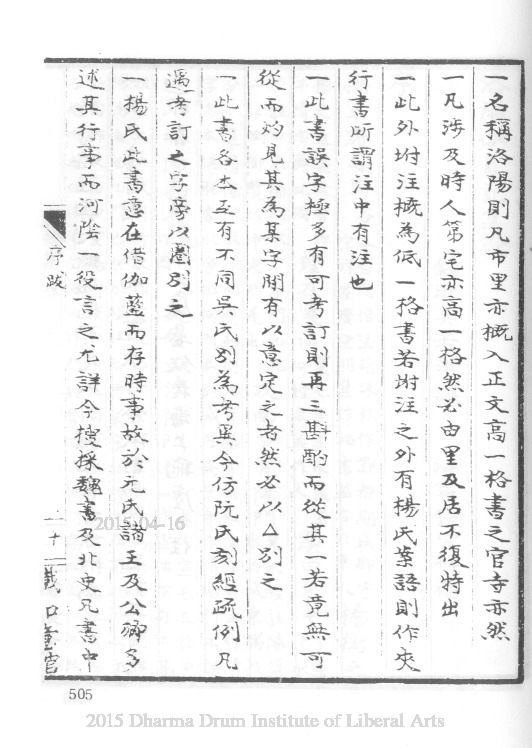 一名稱洛陽則凡市里亦概入正文高一格書之官寺亦然
一凡涉及時人第宅亦高一格然必由里及居不復特出
一此外坿注概為低一格書若坿注之外有楊氏案語則作夾
行書所謂注中有注也
一此書誤字極多有可考訂則再三斟酌而從其一若竟無可
從而灼見其為某字閒有以意定之者然必以△別之
一此書各本互有不同吳氏別為考異今仿阮氏刻經疏例凡
遇考訂之字旁以圈別之
一楊氏此書意在借伽藍而存時事故於元氏諸王及公卿多
述其行事而河陰一役言之尤詳今搜採魏書及北史凡書中
序跋
二十二
2015-04-16
505
2015 Dharma Drum Institute of Liberal Arts